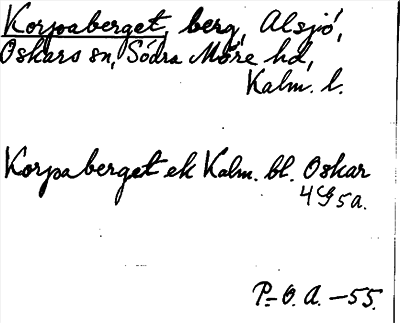 Korpaberget, berg, Alsjö,
Oskars sn, Södra Möre hd,
Kalm. l.
Korpaberget ek Kalm. bl. Oskar
4G5a.
P-O. A. -55.